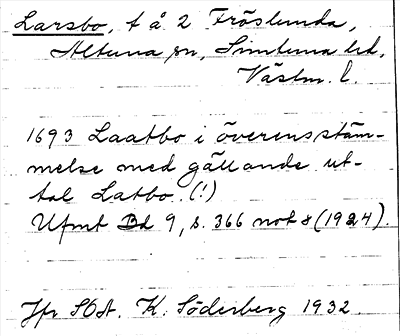 Larsbo, t å 2 Fröslunda,
Altuna sn, Simtuna hd,
Västm. l.
1693 Laatbo i överensstäm-
melse med gällande ut-
tal Latbo (!)
Ufmt Bd 9, s. 366 not 8 (1924).
Jfr SOA. K. Söderberg 1932.